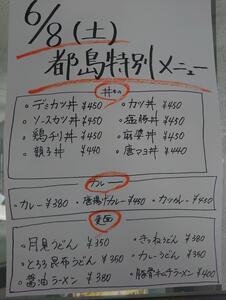 6/8(土)
都島特別メニュー
丼もの
・デミカツ丼 ¥450 ・カツ丼 ¥450
・ソースカツ丼 ¥450 ・
・鶏チリ丼 ¥450 ・麻婆丼 ¥450
・親子丼 ¥440 ・唐マヨ丼 ¥440
カレー
・カレー ¥380 ・唐揚げカレー ¥450 ・カツカレー ¥450
麺
・月見うどん ¥350 ・きつねうどん ¥380
・とろろ昆布うどん ¥350 ・カレーうどん ¥350
・醤油ラーメン ¥380 ・豚骨ラーメン ¥400